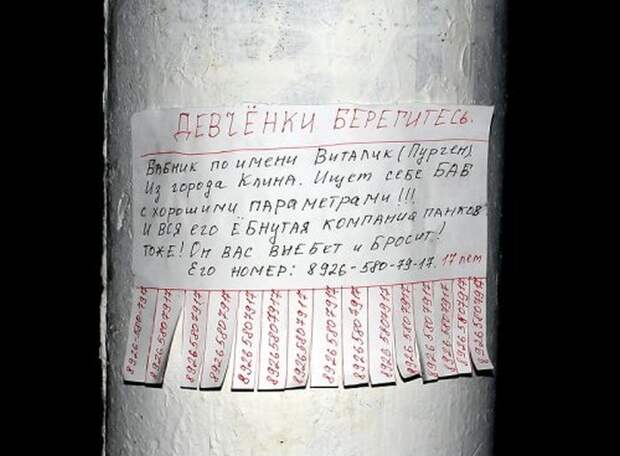 ДЕВЧЁНКИ БЕРЕГИТЕСЬ.
БАБНИК ПО ИМЕНИ ВИТАЛИК (ПУРГЕН)
ИЗ ГОРОДА КЛИНА. ИЩЕТ СЕБЕ БАБ
С ХОРОШИМИ ПАРАМЕТРАМИ!!!
И ВСЯ ЕГО ЁБНУТАЯ КОМПАНИЯ ПАНКОВ
ТОЖЕ! ОН ВАС ВЫЕБЕТ И БРОСИТ!
ЕГО НОМЕР: 8926-580-79-17. 17 лет
8926-580-7917
89265807917
89265807917
89265807917
89265807917
89265807917
89265807917
89265807917
89265807917
89265807917
89265807917
89265807917
89265807917
89265807917
89265807917